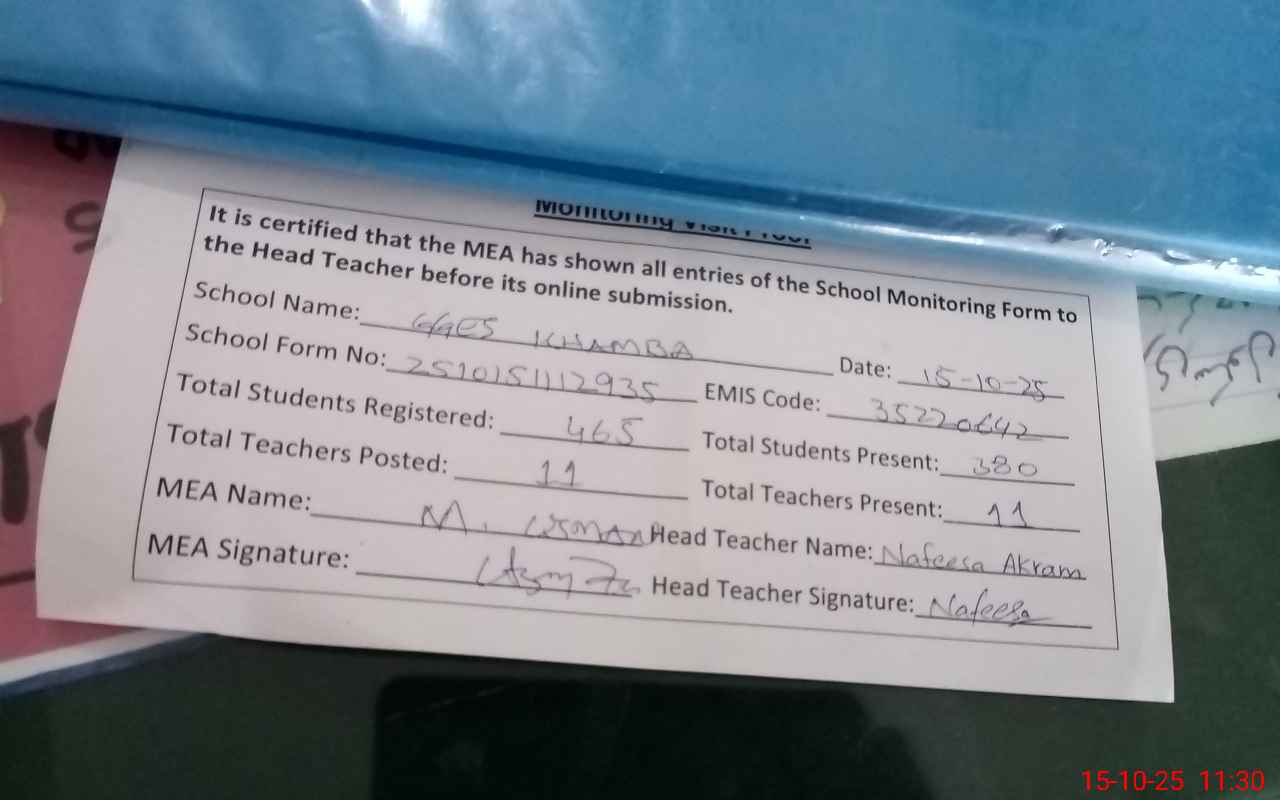 Monitoring Visit Proof
It is certified that the MEA has shown all entries of the School Monitoring Form to
the Head Teacher before its online submission.
School Name: GGES KHAMBA Date: 15-10-25
School Form No: 2510151112935 EMIS Code: 35220642
Total Students Registered: 465 Total Students Present: 380
Total Teachers Posted: 11 Total Teachers Present: 11
MEA Name: M. USMAN Head Teacher Name: Nafeesa Akram
MEA Signature: Head Teacher Signature: Nafeesa
15-10-25 11:30